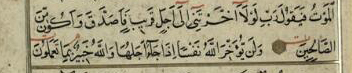 الْمَوْتُ فَيَقُولَ رَبِّ لَوْلَا أَخَّرْتَنِي إِلَى أَجَلٍ قَرِيبٍ فَأَصَّدَّقَ وَأَكُونَ مِنَ
الصَّالِحِينَ وَلَنْ يُؤَخِّرَ اللَّهُ نَفْسًا إِذَا جَاءَ أَجَلُهَا وَاللَّهُ خَبِيرٌ بِمَا تَعْمَلُونَ